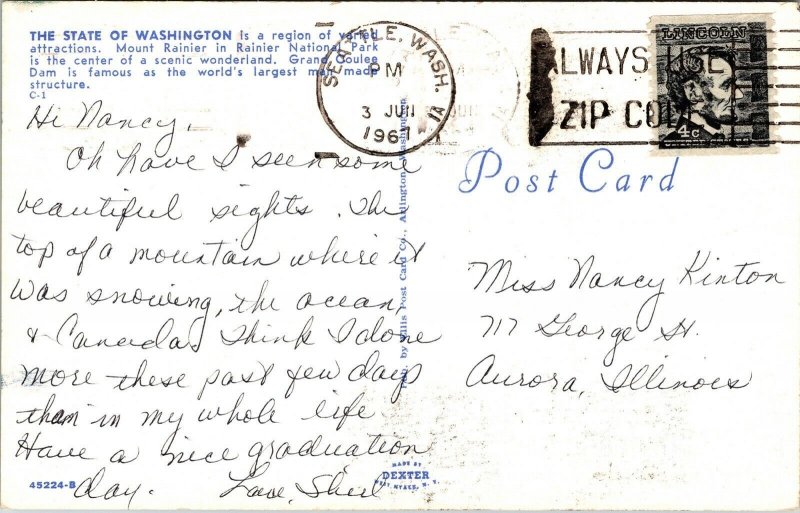 THE STATE OF WASHINGTON is a region of varied
attractions. Mount Rainier in Rainier National Park
is the center of a scenic wonderland. Grand Coulee
Dam is famous as the world's largest man made
structure.
C-1
SEATTLE, WASH.
PM
3 JUN
1967
1A
ALWAYS USE
ZIP CODE
LINCOLN
4c
Post Card
Hi Nancy,
Oh have I seen some
beautiful sights. The
top of a mountain where it
was snowing, the ocean,
& Canada. I think I done
more these past few days
than in my whole life
Have a nice graduation
day. Love, Sheil
Miss Nancy Kinton
717 George St.
Aurora, Illinois
Pub. by Ellis Post Card Co., Arlington, Washington
MADE BY
DEXTER
WEST NYACK, N. Y.
45224-B